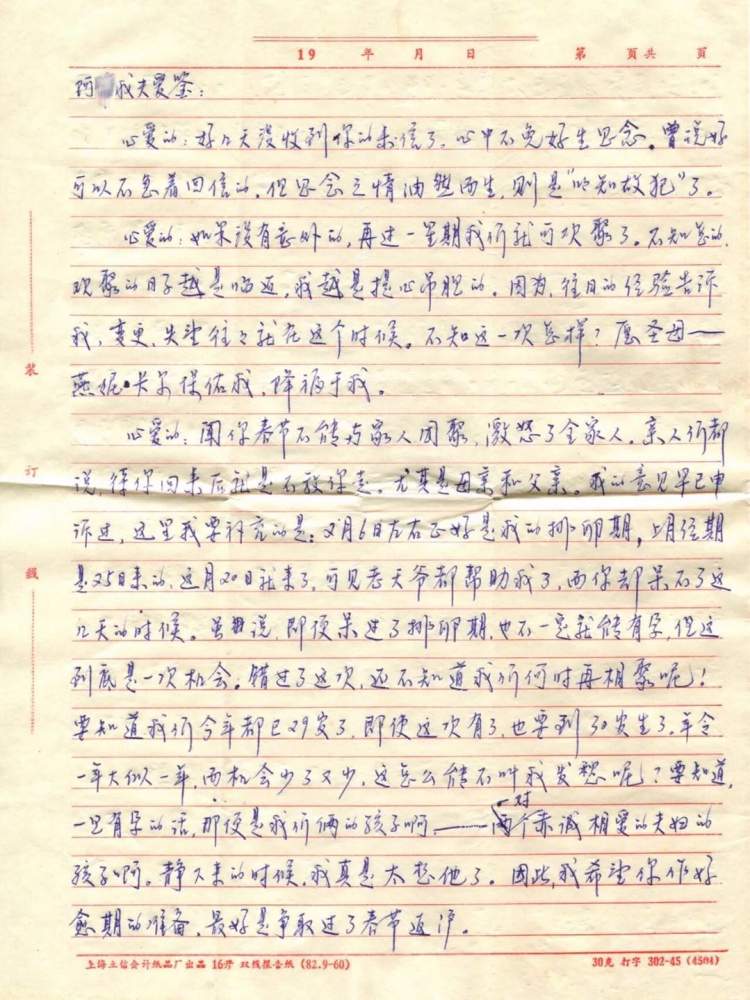 19 年 月 日 第 页共 页
阿 我夫爱鉴:
心爱的:好几天没收到你的来信了,心中不免好生思念。曾说好
可以不急着回信的,但思念之情油然而生,则是“明知故犯”了。
心爱的:如果没有意外的,再过一星期我们就可欢聚了。不知怎的,
欢聚的日子越是临近,我越是提心吊胆的。因为,往日的经验告诉
我,变更、失望往々就在这个时候。不知这一次怎样?愿圣母——
燕妮·卡尔保佑我,降福于我。
心爱的:闻你春节不能与家人团聚,激怒了全家人。亲人们都
说,待你回来后就是不放你走。尤其是母亲和父亲。我的意见早已申
诉过,这里我要补充的是:2月6日左右正好是我的排卵期,上月经期
是25日来的,这月20日就来了,可见老天爷都帮助我了,而你却呆不了这
几天的时候。虽说,即便呆过了排卵期,也不一定就能有孕,但这
到底是一次机会。错过了这次,还不知道我们何时再相聚呢!
要知道我们今年都已29岁了,即使这次有了,也要到30岁生了,年令
一年大似一年,而机会少了又少,这怎么能不叫我发愁呢?要知道,
一旦有孕的话,那便是我们俩的孩子啊——一对两个赤诚相爱的夫妇的
孩子啊。静下来的时候,我真是太想他了。因此,我希望你作好
愈期的准备,最好是争取过了春节返沪。
装
订
线
上海立信会计纸品厂出品 16开 双线报告纸 (82.9-60) 30克 打字 302-45 (4504)